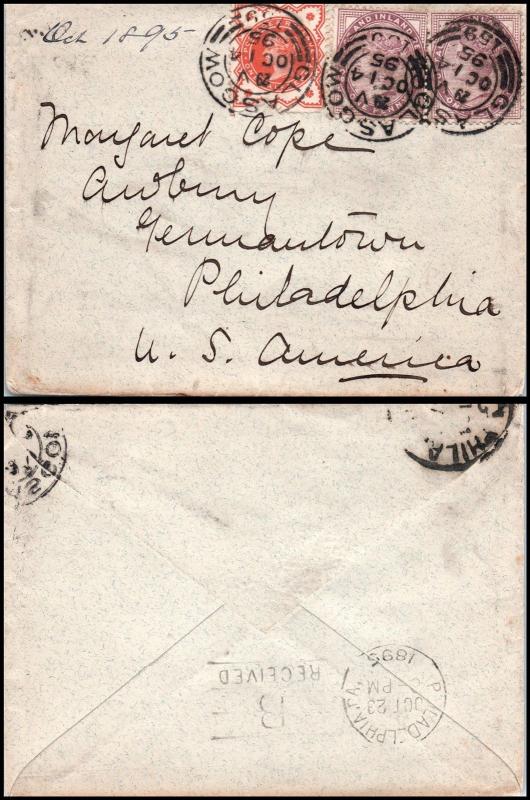 Oct 1895
GLASGOW
OC 14
95
159
GLASGOW
OC 14
95
GLASGOW
OC 14
95
159
AND INLAND
Margaret Cope
Awbury
Germantown
Philadelphia
U. S. America
PHILA.
B
RECEIVED
PHILADELPHIA, PA.
OCT 23
PM
1895